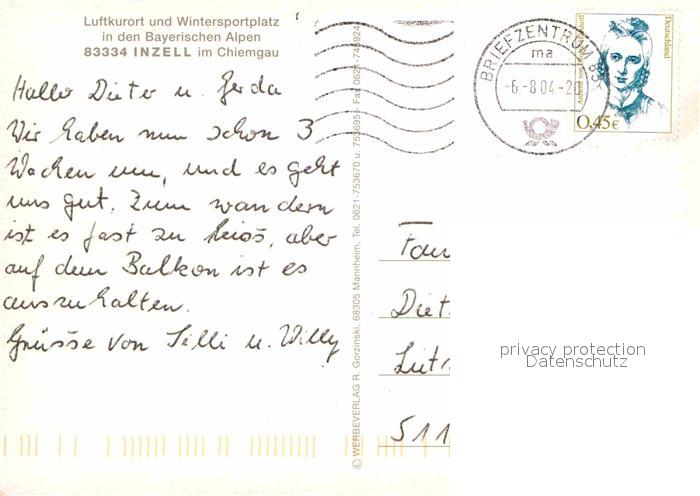 Luftkurort und Wintersportplatz
in den Bayerischen Alpen
83334 INZELL im Chiemgau
Hallo Dieter u. Gerda
Wir haben nun schon 3
Wochen um, und es geht
uns gut. Zum wandern
ist es fast zu heiss, aber
auf dem Balkon ist es
auszuhalten.
Grüsse von Silli u. Willy
© WERBEVERLAG R. Gorzinski, 68305 Mannheim, Tel. 0621-753670 u. 753695 - Fax 0621-745924
BRIEFZENTRUM 83
ma
-6.-8 04-20
Deutschland
0,45€
Fam
Diet
511
privacy protection
Datenschutz